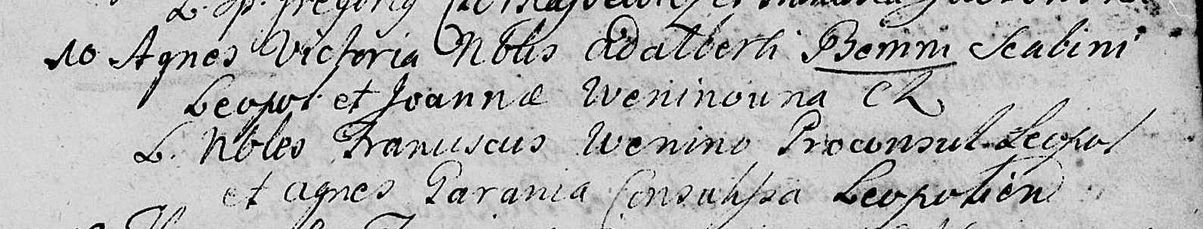 L. Sp. Gregorius et
10 Agnes Victoria Nblis Adalberti Benini Scabini
Leopol et Joannæ Weninouna CL
L. Nbles Franciscus Wenino Proconsul Leopol
et Agnes Garania Consulissa Leopolien